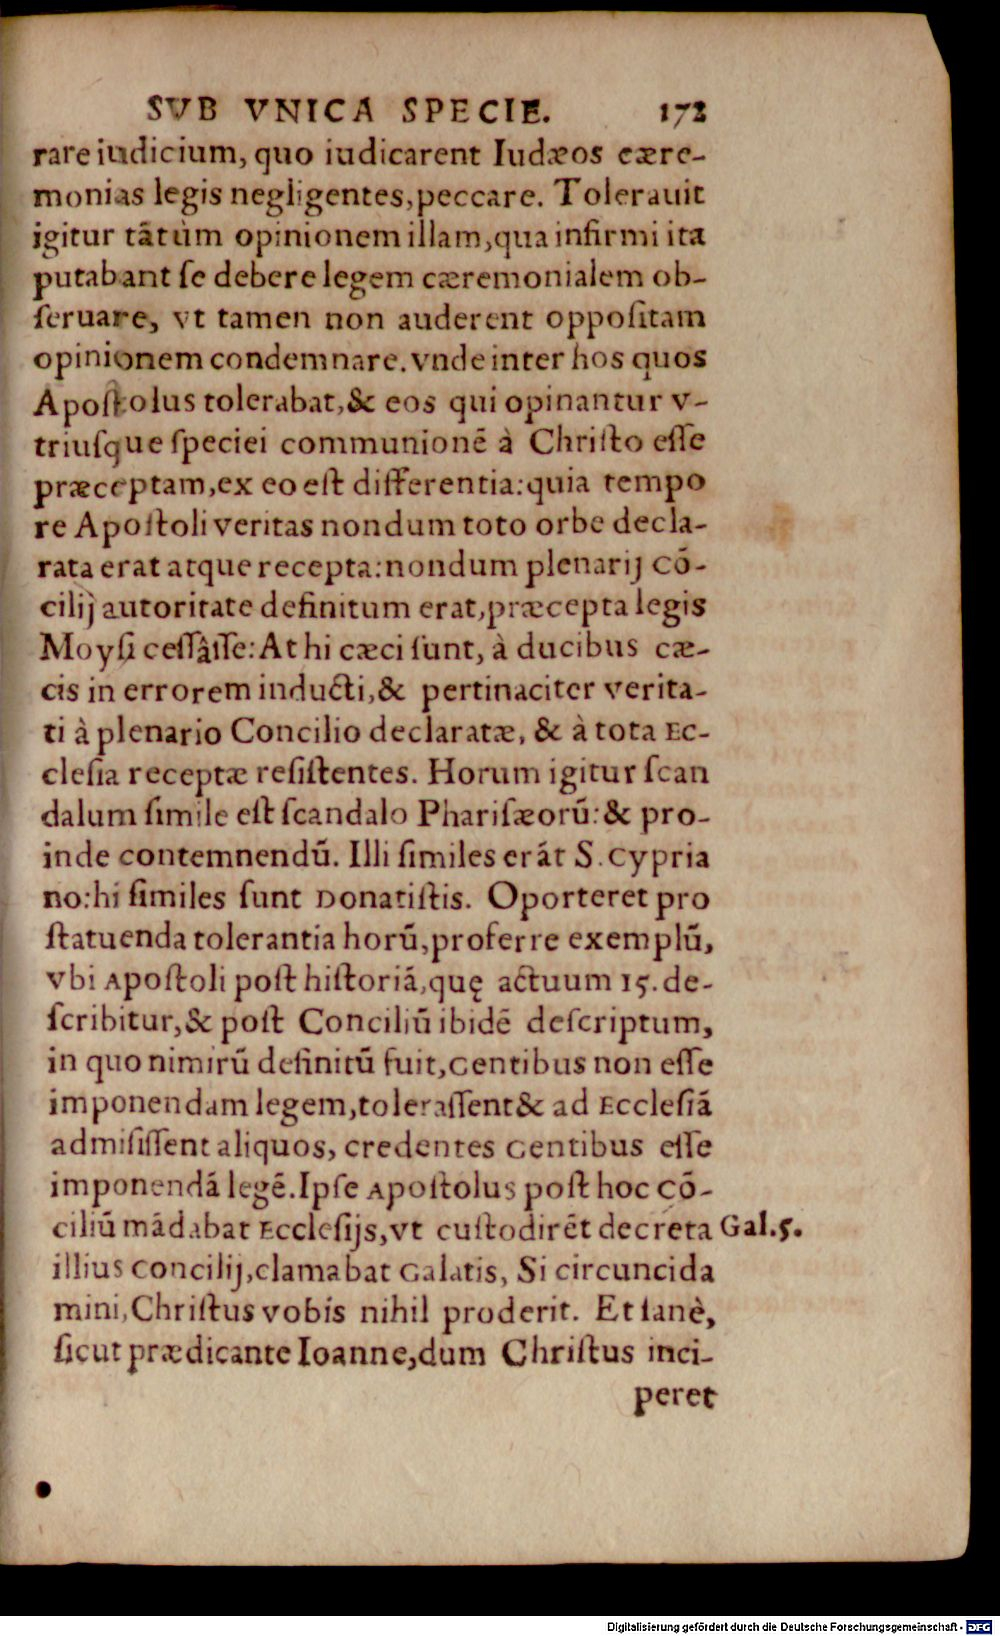 SVB VNICA SPECIE. 172
rare iudicium, quo iudicarent Iudæos cære-
monias legis negligentes, peccare. Tolerauit
igitur tãtùm opinionem illam, qua infirmi ita
putabant ſe debere legem cæremonialem ob-
ſeruare, vt tamen non auderent oppoſitam
opinionem condemnare. vnde inter hos quos
Apoſtolus tolerabat, & eos qui opinantur v-
triuſque ſpeciei communionẽ à Chriſto eſſe
præceptam, ex eo eſt differentia: quia tempo
re Apoſtoli veritas nondum toto orbe decla-
rata erat atque recepta: nondum plenarij cõ-
cilij autoritate definitum erat, præcepta legis
Moyſi ceſſâſſe: At hi cæci ſunt, à ducibus cæ-
cis in errorem inducti, & pertinaciter verita-
ti à plenario Concilio declaratæ, & à tota Ec-
cleſia receptæ reſiſtentes. Horum igitur ſcan
dalum ſimile eſt ſcandalo Phariſæorũ: & pro-
inde contemnendũ. Illi ſimiles erãt S. Cypria
no: hi ſimiles ſunt Donatiſtis. Oporteret pro
ſtatuenda tolerantia horũ, proferre exemplũ,
vbi Apoſtoli poſt hiſtoriã, quę actuum 15. de-
ſcribitur, & poſt Conciliũ ibidẽ deſcriptum,
in quo nimirũ definitũ fuit, Gentibus non eſſe
imponendam legem, toleraſſent & ad Eccleſiã
admiſiſſent aliquos, credentes Gentibus eſſe
imponendã legẽ. Ipſe Apoſtolus poſt hoc cõ-
ciliũ mãdabat Eccleſijs, vt cuſtodirẽt decreta Gal. 5.
illius concilij, clamabat Galatis, Si circuncida
mini, Chriſtus vobis nihil proderit. Et ſanè,
ſicut prædicante Ioanne, dum Chriſtus inci-
peret
Digitalisierung gefördert durch die Deutsche Forschungsgemeinschaft - DFG